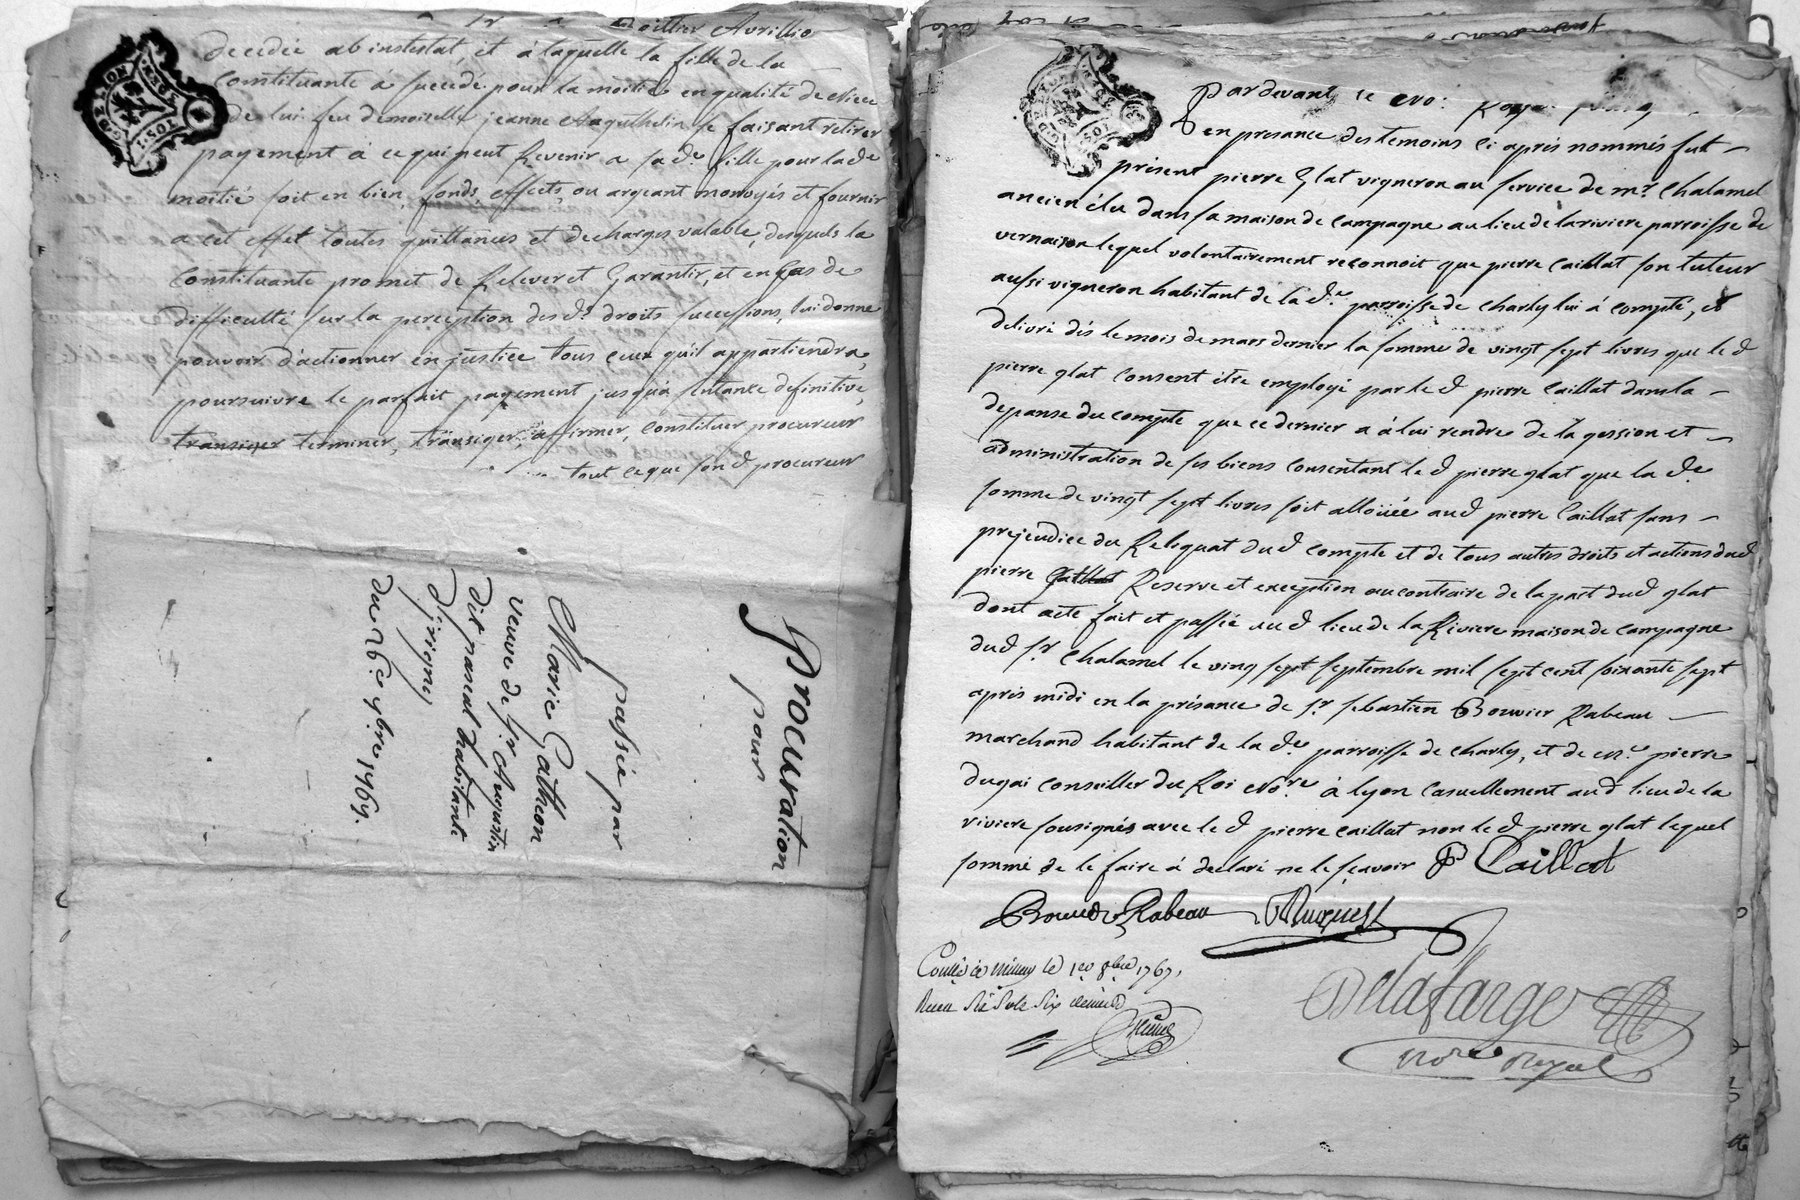 decedée ab instestat, et a laquelle la fille de la
Constituante a succedé pour la moitié en qualité de niece
de lui feu demoiselle jeanne se faisant retirer
payement a ce qui peut Revenir a sad.e fille pour lad.e
moitié soit en bien fonds, effects, ou argeant monoyés et fournir
a cet effet toutes quittances et decharges valable, desquels la
Constituante promet de Relever et Garantir, et en Cas de
difficulté sur la perception desd.s droits successions, lui donne
pouvoir d'actionner en justice tous ceux qu'il appartiendra,
poursuivre le parfait payement jusqu'a sentance definitive,
transiger terminer, transiger, affirmer, constituer procureur
tout ce que son d procureur
Procuration
pour
passée par
Marie Gatheon
veuve de Sr. Augustin
dit pascal habitante
d'jrigny
du 26e 9bre 1769.
Pardevant le No.
en presance des temoins Ci après nommés fut
présent pierre Glat vigneron au service de mr. Chalamel
ancien élu dans sa maison de campagne au lieu de la riviere parroisse de
vernaison lequel volontairement reconnoit que pierre Caillat son tuteur
aussi vigneron habitant de la d.e parroisse de Charly lui à compté, et
delivré dès le mois de mars dernier la somme de vingt sept livres que le d
pierre glat Consent être employé par le d pierre Caillat dans la
depanse du compte que ce dernier a à lui rendre de la gession et
administration de ses biens Consentant le d pierre glat que la d.e
somme de vingt sept livres soit alloüée aud pierre Caillat sans
prejeudice du Reliquat dud compte et de tous autres droits et actions dud
pierre Caillat Reserve et exception au contraire de la part dud glat
dont acte fait et passé aud lieu de la Riviere maison de campagne
dud Sr. Chalamel le vingt sept septembre mil sept cent soixante sept
après midi en la présance de Sr. sebastien Bouvier Rabeau
marchand habitant de la d.e parroisse de Charly, et de me. pierre
dugai conseiller du Roi No.re à lyon Casuellement aud lieu de la
riviere sousignés avec le d pierre caillat non le d pierre glat lequel
sommé de le faire à declaré ne le sçavoir P Caillat
Bouvier Rabeau
le 1er 8bre 1767,
Delafarge
No.re Royal